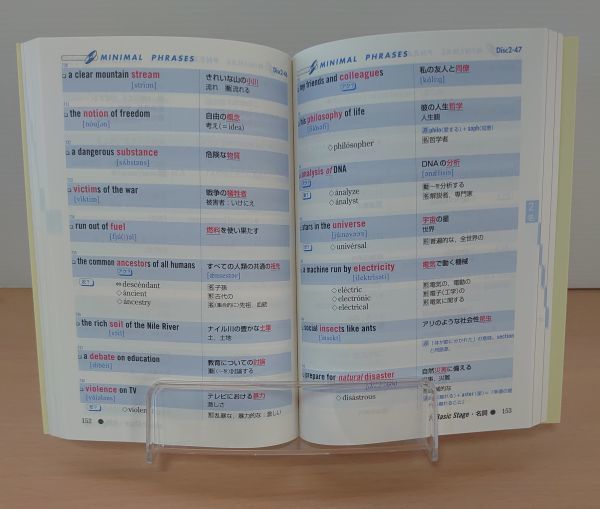 MINIMAL PHRASES
Disc2-46
a clear mountain stream
きれいな山の小川
流れ 動流れる
the notion of freedom
自由の観念
考え(=idea)
a dangerous substance
危険な物質
victims of the war
戦争の犠牲者
被害者,いけにえ
run out of fuel
燃料を使い果たす
the common ancestors of all humans
すべての人類の共通の祖先
アク
⇔descéndant
名子孫
◇áncient
形古代の
◇áncestry
the rich soil of the Nile River
ナイル川の豊かな土壌
土,土地
a debate on education
教育についての討論
violence on TV
テレビにおける暴力
激しさ
形乱暴な,暴力的な;激しい
152
MINIMAL PHRASES
Disc2-47
my friends and colleagues
私の友人と同僚
アク
his philosophy of life
彼の人生哲学
人生観
◇philósopher
名哲学者
analysis of DNA
DNAの分析
◇ánalyze
動~を分析する
◇ánalyst
名解説者,専門家
stars in the universe
宇宙の星
世界
◇univérsal
形普遍的な,全世界の
a machine run by electricity
電気で動く機械
◇eléctric
形電気の,電動の
◇electrónic
形電子(工学)の
◇eléctrical
形電気に関する
social insects like ants
アリのような社会性昆虫
prepare for natural disaster
自然災害に備える
◇disástrous
Basic Stage・名詞
153